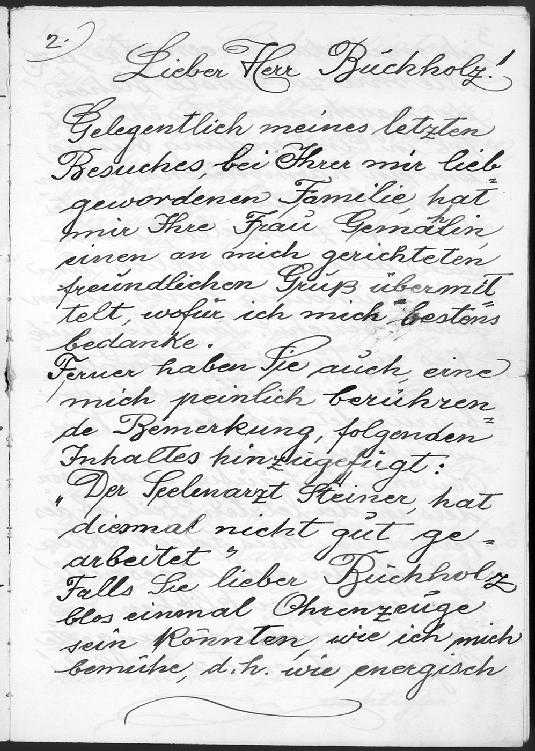 2.
Lieber Herr Buchholz!
Gelegentlich meines letzten
Besuches, bei Ihrer mir lieb=
gewordenen Familie, hat
mir Ihre Frau Gemälin,
einen an mich gerichteten
freundlichen Gruß übermit=
telt, wofür ich mich bestens
bedanke.
Ferner haben Sie auch eine
mich peinlich berühren=
de Bemerkung, folgenden
Inhaltes hinzugefügt:
„Der Seelenarzt Steiner, hat
diesmal nicht gut ge=
arbeitet"
Falls Sie lieber Buchholz
blos einmal Ohrenzeuge
sein könnten, wie ich mich
bemühe, d.h. wie energisch